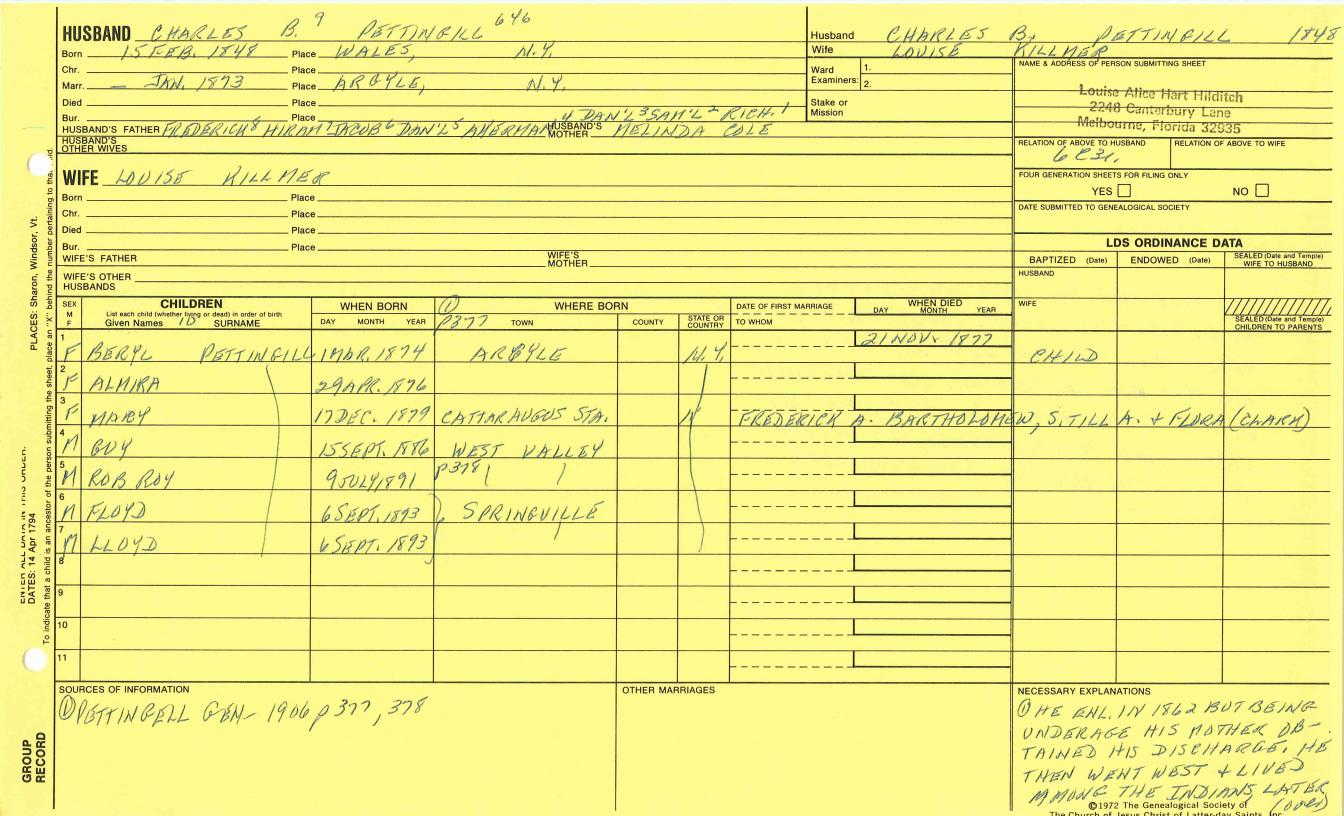 HUSBAND CHARLES B. 9 PETTINGILL 646
Born 15 FEB. 1848 Place WALES, N.Y.
Chr. Place
Marr. — JAN. 1873 Place ARGYLE, N.Y.
Died Place
Bur. Place
4 DAN'L 3 SAM'L 2 RICH. 1
HUSBAND'S FATHER FREDERICK 8 HIRAM 7 JACOB 6 DAN'L 5 AKERMAN HUSBAND'S MOTHER MELINDA COLE
HUSBAND'S OTHER WIVES
Husband CHARLES B. PETTINGILL 1848
Wife LOUISE KILLMER
Ward Examiners: 1.
2.
Stake or Mission
NAME & ADDRESS OF PERSON SUBMITTING SHEET
Louise Alice Hart Hilditch
2248 Canterbury Lane
Melbourne, Florida 32935
RELATION OF ABOVE TO HUSBAND RELATION OF ABOVE TO WIFE
6C3r.
FOUR GENERATION SHEETS FOR FILING ONLY
YES NO
DATE SUBMITTED TO GENEALOGICAL SOCIETY
WIFE LOUISE KILLMER
Born Place
Chr. Place
Died Place
Bur. Place
WIFE'S FATHER WIFE'S MOTHER
WIFE'S OTHER HUSBANDS
LDS ORDINANCE DATA
BAPTIZED (Date) ENDOWED (Date) SEALED (Date and Temple) WIFE TO HUSBAND
HUSBAND
WIFE
SEALED (Date and Temple) CHILDREN TO PARENTS
SEX M F CHILDREN WHEN BORN ① WHERE BORN DATE OF FIRST MARRIAGE WHEN DIED
List each child (whether living or dead) in order of birth
Given Names 10 SURNAME DAY MONTH YEAR P377 TOWN COUNTY STATE OR COUNTRY TO WHOM DAY MONTH YEAR
1 F BERYL PETTINGILL 1 MAR. 1874 ARGYLE N.Y. 21 NOV. 1877 CHILD
2 F ALMIRA 29 APR. 1876
3 F MARY 17 DEC. 1879 CATTARAUGUS STA. FREDERICK A. BARTHOLOMEW, S. TILL A. & FLORA (CLARK)
4 M GUY 15 SEPT. 1886 WEST VALLEY
5 M ROB ROY 9 JULY, 1891 P378
6 M FLOYD 6 SEPT. 1893 SPRINGVILLE
7 M LLOYD 6 SEPT. 1893
8
9
10
11
SOURCES OF INFORMATION
① PETTINGELL GEN- 1906 p 377, 378
OTHER MARRIAGES
NECESSARY EXPLANATIONS
① HE ENL. IN 1862 BUT BEING
UNDERAGE HIS MOTHER OB-
TAINED HIS DISCHARGE. HE
THEN WENT WEST & LIVED
AMONG THE INDIANS, LATER
(over)
©1972 The Genealogical Society of
The Church of Jesus Christ of Latter-day Saints, Inc.
ENTER ALL DATA IN THIS ORDER:
DATES: 14 Apr 1794
PLACES: Sharon, Windsor, Vt.
To indicate that a child is an ancestor of the person submitting the sheet, place an "X" behind the number pertaining to that child.
GROUP RECORD